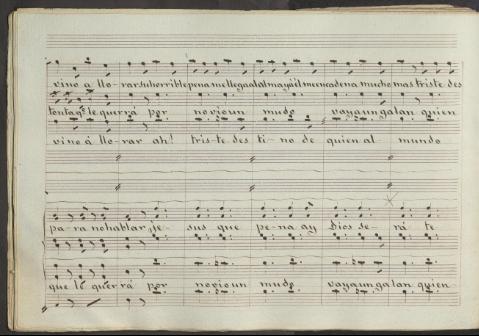 vino a llo- rar su horrible pena me llega al alma y á él me encadena mucho mas triste des
tonta qe. le querrá por novio un mudo vaya un galan quien
vino á llo- rar ah! tris- te des ti- no de quien al mundo
pa- ra no hablar, je- sus que pe- na ay Dios se- rá te
que le querrá por novio un mudo vaya un galan quien